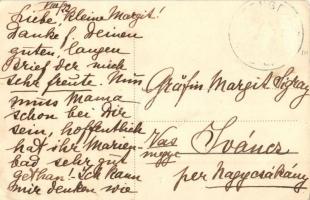 Liebe, kleine Margit!
Danke f. Deinen
guten langen
Brief der mich
sehr freute. Nun
muss Mama
schon bei Dir
sein, hoffentlich
hat ihr Marien-
bad sehr gut
gethan! Ich kann
mir denken wie
Gräfin Margit Sigray
Vas
megye
Iváncz
per Nagycsákány